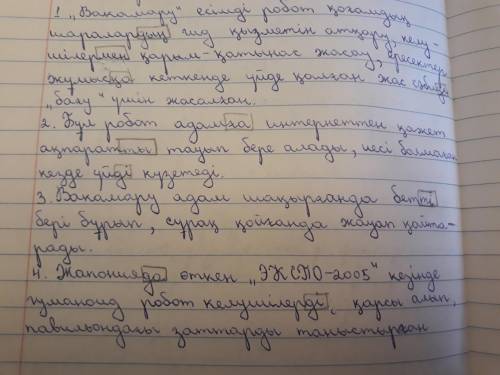 1. „Вакамару" есімді робот қоғамдық
шаралардың гид қызметін атқару, келу-
шілермен қарым-қатынас жасау, ересектер
жұмысқа кеткенде үйде қалған жас сәбиді
„бағу" үшін жасалған.
2. Бұл робот адамға интернеттен қажет
ақпаратты тауып бере алады, иесі болмаған
кезде үйді күзетеді.
3. Вакамару адам шақырғанда бетті
бері бұрып, сұрақ қойғанда жауап қайта-
рады.
4. Жапонияда өткен „ЭКСПО-2005" кезінде
гуманоид робот келушілерді қарсы алып,
павильондағы заттарды таныстырған